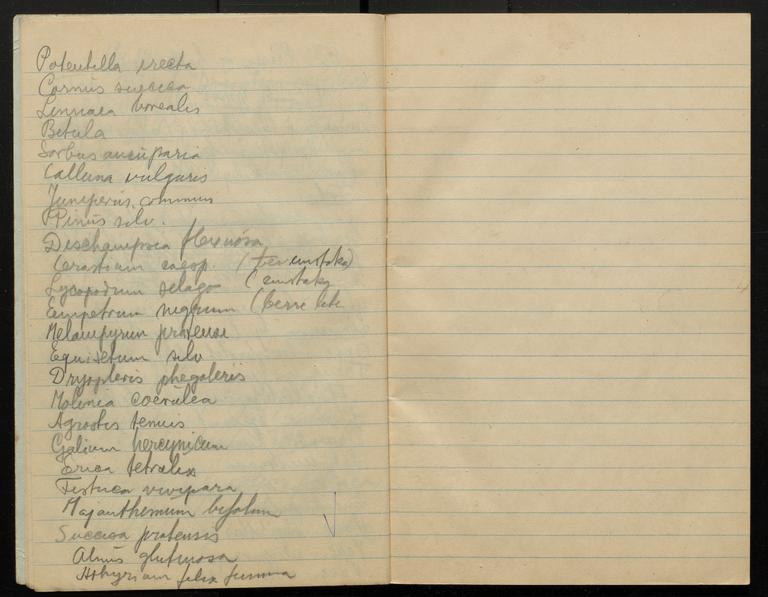 Potentilla erecta
Cornus suecica
Linnaea borealis
Betula
Sorbus aucuparia
Calluna vulgaris
Juniperus communis
Pinus silv.
Deschampsia flexuosa
Cerastium caesp.
Lycopodium selago (enustaka
Empetrum nigrum (berre
Melampyrum pratense
Equisetum silv
Dryopteris phegopteris
Molinia coerulea
Agrostis tenuis
Galium hercynicum
Erica tetralix
Festuca vivipara
Majanthemum bifolium
Succisa pratensis
Alnus glutinosa
Athyrium felix femina